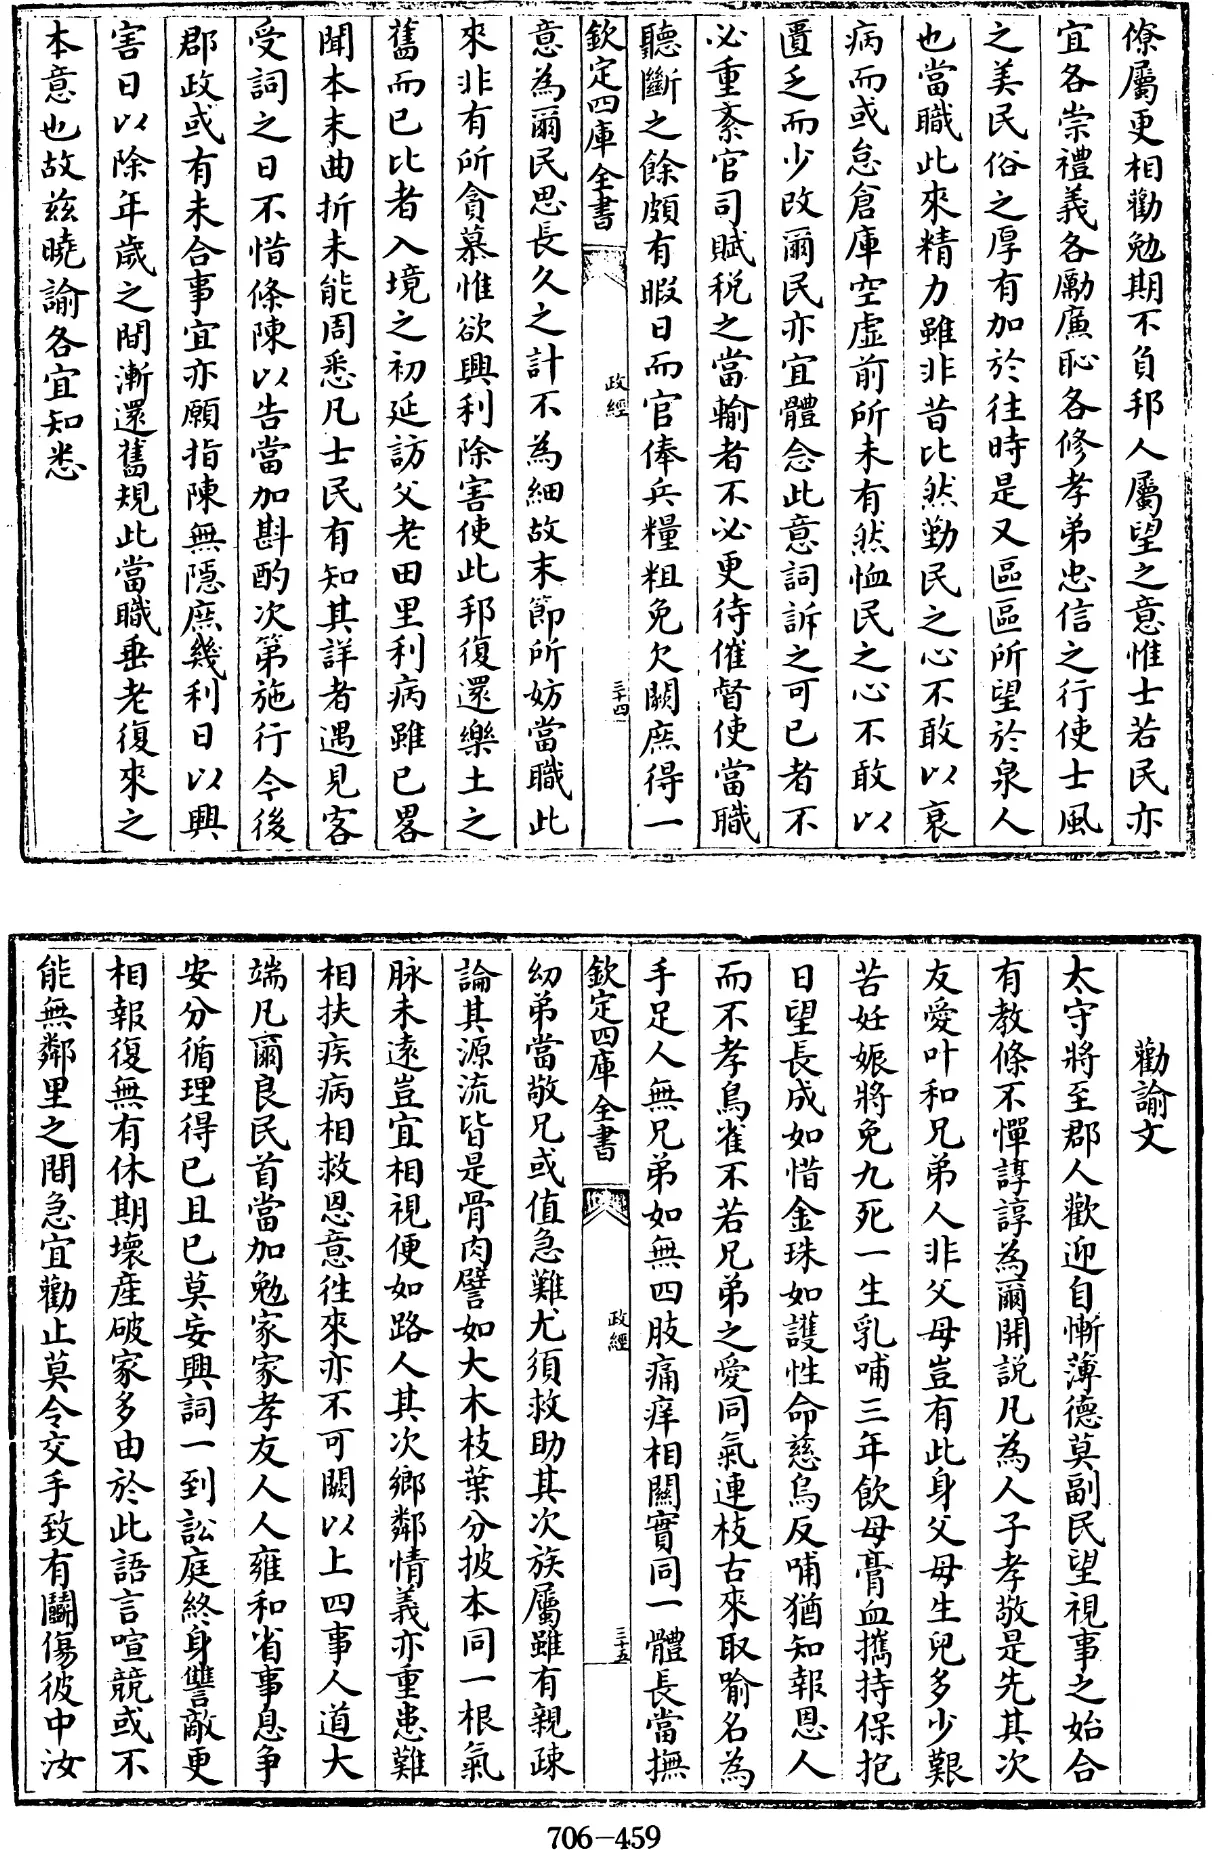 僚屬更相勸勉期不負邦人屬望之意惟士若民亦
宜各崇禮義各勵廉恥各修孝弟忠信之行使士風
之美民俗之厚有加於往時是又區區所望於泉人
也當職此來精力雖非昔比然勤民之心不敢以衰
病而或怠倉庫空虛前所未有然恤民之心不敢以
匱乏而少改爾民亦宜體念此意詞訴之可已者不
必重紊官司賦稅之當輸者不必更待催督使當職
聽斷之餘頗有暇日而官俸兵糧粗免欠闕庶得一
欽定四庫全書
政經
三十四
意為爾民思長久之計不為細故末節所妨當職此
來非有所貪慕惟欲興利除害使此邦復還樂土之
舊而已比者入境之初延訪父老田里利病雖已畧
聞本末曲折未能周悉凡士民有知其詳者遇見客
受詞之日不惜條陳以告當加斟酌次第施行今後
郡政或有未合事宜亦願指陳無隱庶幾利日以興
害日以除年歲之間漸還舊規此當職垂老復來之
本意也故兹曉諭各宜知悉
勸諭文
太守將至郡人歡迎自慚薄德莫副民望視事之始合
有教條不憚諄諄為爾開説凡為人子孝敬是先其次
友愛叶和兄弟人非父母豈有此身父母生兒多少艱
苦妊娠將免九死一生乳哺三年飲母膏血攜持保抱
日望長成如惜金珠如護性命慈烏反哺猶知報恩人
而不孝烏雀不若兄弟之愛同氣連枝古來取喻名為
手足人無兄弟如無四肢痛痒相關實同一體長當撫
欽定四庫全書
政經
三十五
幼弟當敬兄或值急難尤須救助其次族屬雖有親疎
論其源流皆是骨肉譬如大木枝葉分披本同一根氣
脉未遠豈宜相視便如路人其次鄉鄰情義亦重患難
相扶疾病相救恩意往來亦不可闕以上四事人道大
端凡爾良民首當加勉家家孝友人人雍和省事息爭
安分循理得已且已莫妄興詞一到訟庭終身讐敵更
相報復無有休期壞産破家多由於此語言喧競或不
能無鄰里之間急宜勸止莫令交手致有鬬傷彼中汝
706-459